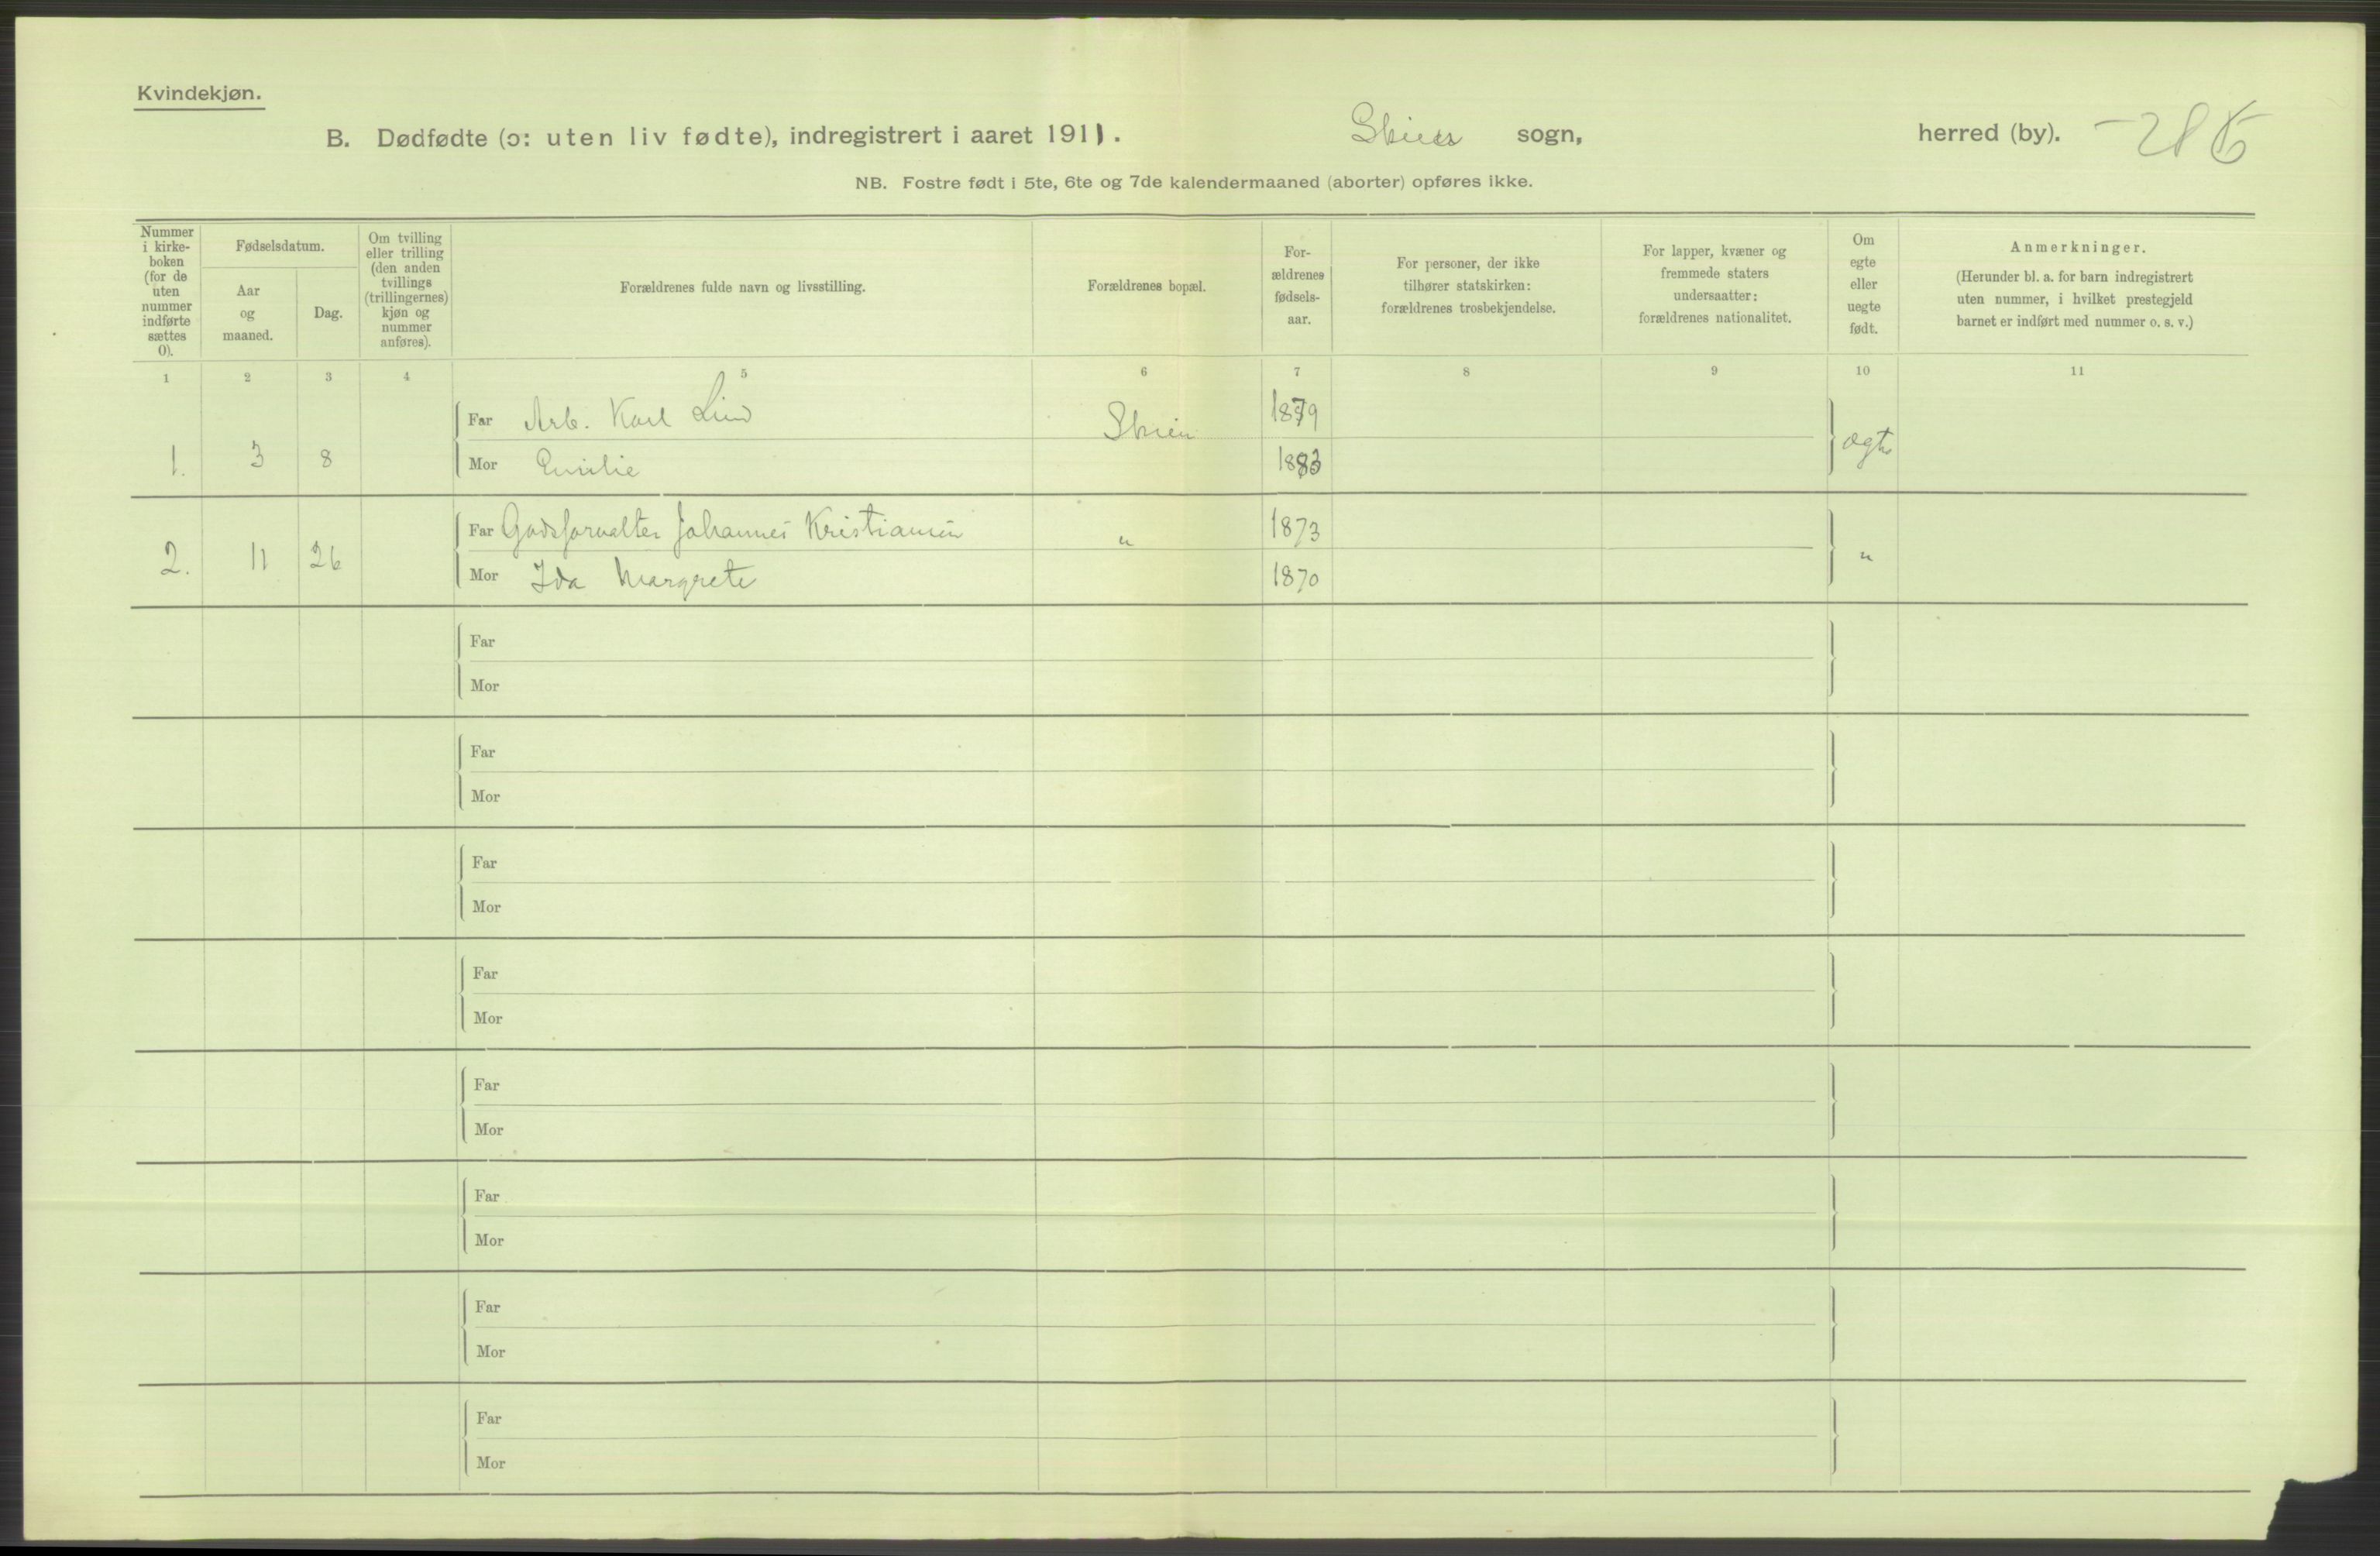 Kvindekjøn.
B. Dødfødte (ɔ: uten liv fødte), indregistrert i aaret 1911. Skien sogn, herred (by).
NB. Fostre født i 5te, 6te og 7de kalendermaaned (aborter) opføres ikke.
Nummer
i kirke-
boken
(for de
uten
nummer
indførte
sættes
0).
Fødselsdatum.
Aar
og
maaned.
Dag.
Om tvilling
eller trilling
(den anden
tvillings
(trillingernes)
kjøn og
nummer
anføres).
Forældrenes fulde navn og livsstilling.
Forældrenes bopæl.
For-
ældrenes
fødsels-
aar.
For personer, der ikke
tilhører statskirken:
forældrenes trosbekjendelse.
For lapper, kvæner og
fremmede staters
undersaatter:
forældrenes nationalitet.
Om
egte
eller
uegte
født.
Anmerkninger.
(Herunder bl. a. for barn indregistrert
uten nummer, i hvilket prestegjeld
barnet er indført med nummer o. s. v.)
1 2 3 4 5 6 7 8 9 10 11
Far Arb. Karl Lind Skien 1879
1. 3 8 Mor Emilie 1883 ægte
Far Godsforvalter Johannes Kristiansen " 1873
2. 11 26 Mor Ida Margrete 1870 "
Far
Mor
Far
Mor
Far
Mor
Far
Mor
Far
Mor
Far
Mor
Far
Mor
Far
Mor